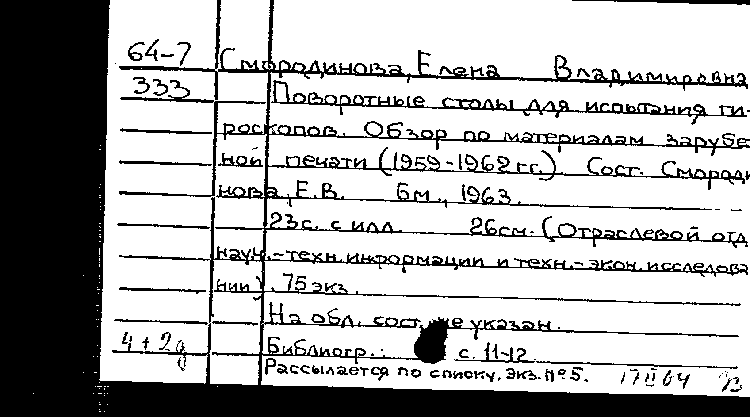 64-7 Смородинова, Елена Владимировна
333 Поворотные столы для испытания ги-
роскопов. Обзор по материалам зарубе
ной печати (1959-1962 гг.) Сост. Смороди
нова, Е.В. Бм., 1963.
23с. с илл. 26см. (Отраслевой отд
науч.-техн. информации и техн.-экон. исследова
нии). 75 экз.
На обл. сост. не указан.
4+2д Библиогр.: с. 11-12
Рассылается по списку. Экз. № 5. 17 II 64